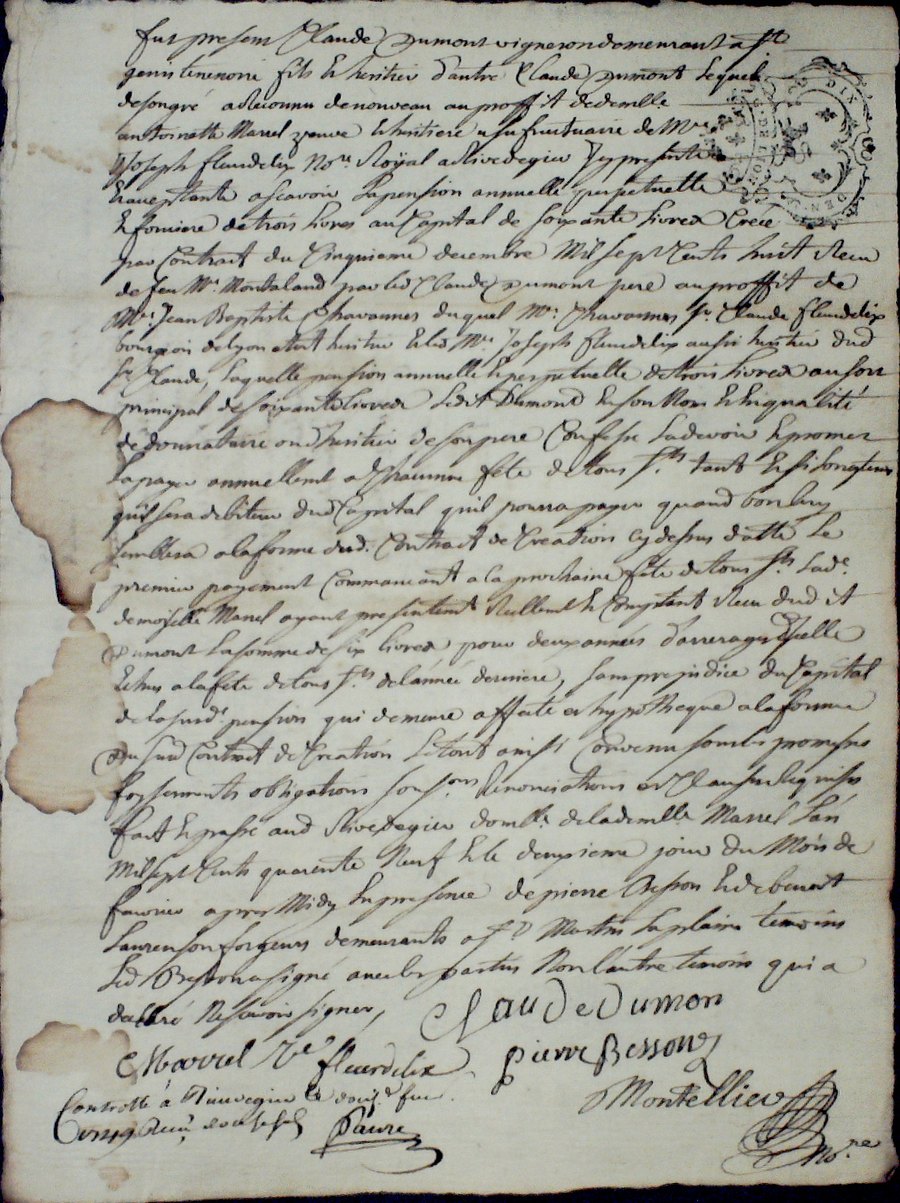 fut present Claude Dumont vigneron demeurant a St
genis terrenoire fils & heritier d'autre Claude Dumont Lequel
de son gré a Reconnu de nouveau au proffit de demlle
antoinette Marrel veuve & heritiere usufruituaire de Mre
Joseph fleurdelix Nore Royal a Rivedegier Icy presente
& acceptante ascavoir La pension annuelle perpetuelle
& fonciere de trois livres au Capital de soixante Livres Creée
par Contract du Cinquieme decembre Mil sept Cents huit Receu
de feu Me Montaland par led Claude Dumont pere au proffit de
Mre Jean Baptiste Chavannes duquel Mre Chavannes Sr Claude fleurdelix
bourgeois de lyon etoit heritier & led Mre Joseph fleurdelix aussi heritier dud
Sr Claude, Laquelle pension annuelle & perpetuelle de trois Livres au sort
principal de soixante Livres Ledit Dumond en son Nom & en qualité
de donnataire ou d'heritier de son pere Confesse La devoir & promet
La payer annuellement a Chacune fête de tous Sts tant & si longtems
qu'il sera debiteur dud Capital qu'il pourra payer quand bon luy
semblera a la forme dud. Contract de Creation cy dessus datté Le
premier payement Commancant a la prochaine fête de tous Sts Lade
demoiselle Marrel ayant presentemt Reellemt & Comptant Receu dud it
Dumont La somme de six livres pour deux années d'arrerages d'Icelle
Echus a la fête de tous Sts de l'année derniere, sans prejudice du Capital
de la susde pension qui demeure affecté et hypotheque a la forme
du susd Contract de Creation Le tout ainsi Convenu sous les promesses
serments obligations soumons Renonciations et Clauses Requises
fait & passé aud Rivedegier domlle de lad demlle Marrel L'an
Mil sept Cents quarente Neuf & le deuxieme jour du Mois de
fevrier apres Midy En presence de pierre Besson & de benoit
Laurenson forgeurs demeurants a St Martin La plaine temoins
Led Besson a signé avec les parties Non l'autre temoin qui a
declaré Ne scavoir signer,
Claude Dumon
Marrel Ve fleurdelix
pierre Besson
Controllé à Rivedegier le douze fev.
Montellier
Faure
no.re